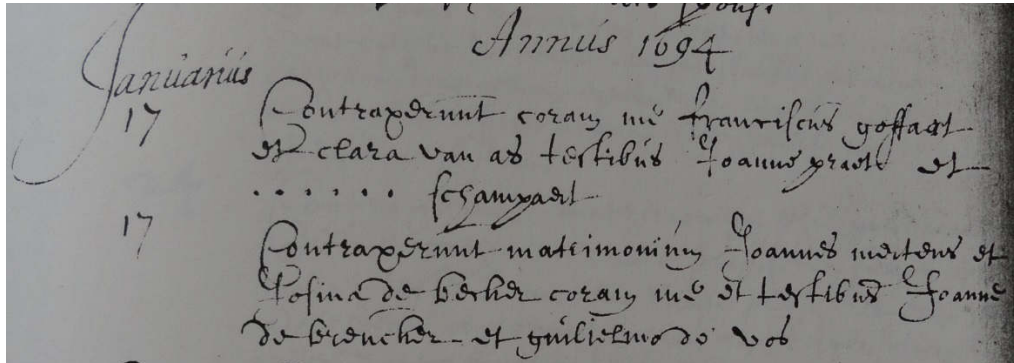 Annús 1694
Januariús
17 Contraxerunt coram me franciscús goffaert
et clara van as testibús Joanne praet et
. . . . . . schampaert
17 Contraxerúnt matrimoniúm Joannes mertens et
Josina de becker coram me et testibús Joanne
de et gúilielmo de vos